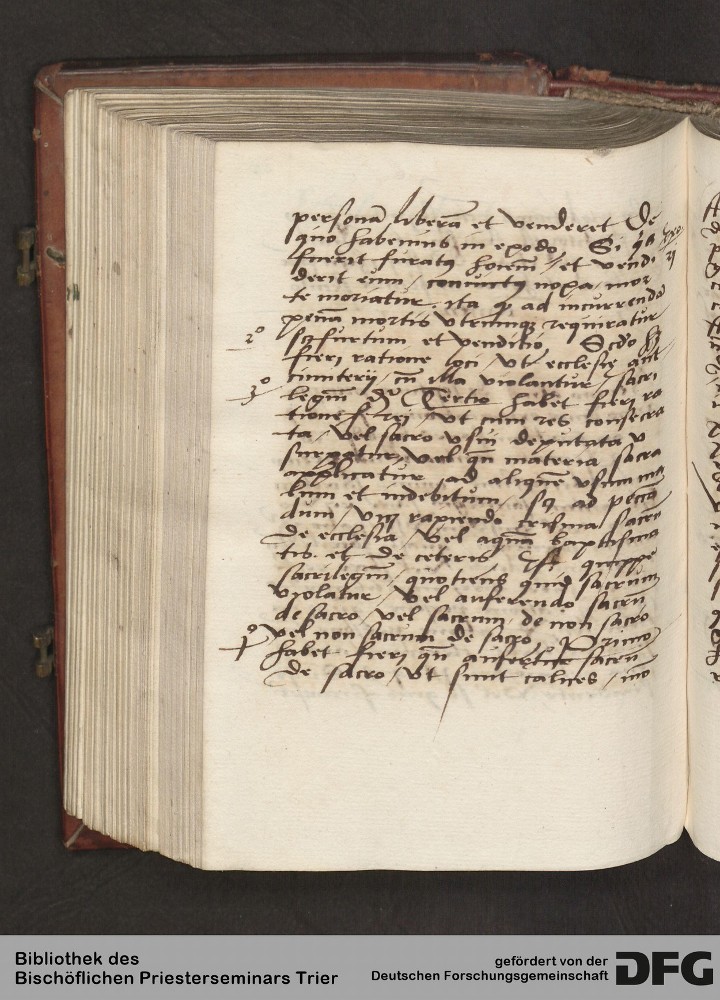 personā liberā et venderet De
quo habemus in exodo Si q̄s exo
fuerit furatꝰ hoīem / et vendi 21
derit eum / convictꝰ noxa / mor
te moriatur. ita ꝙ ad incurrendā
penā mortis utrumqꝫ requiratur
2º scꝫ furtum et venditio Scdo hꝫ
fieri ratione loci / ut ecclesie aut
cimiterij / cū illa violantur / sacri
3º legiū Tertio habet fieri ra
tione rei / ut cum res consecra
ta / vel sacro usui deputata
surripatur / vel qn̄ materia sacra
applicatur ad aliquē usum ma
lum et indebitum / ad peccā
dum / rapiendo crisma sacrū
de ecclesia / vel aquā baptisma
tis et de ceteris Fit quippe
sacrilegiū / quotiens quid sacrum
violatur / vel auferendo sacrū
de sacro / vel sacrum de non sacro
vel non sacrum de sacro Primo
habet fieri qn̄ aufertur sacrū
de sacro / ut sunt calices / mo
Bibliothek des
Bischöflichen Priesterseminars Trier
gefördert von der
Deutschen Forschungsgemeinschaft
DFG